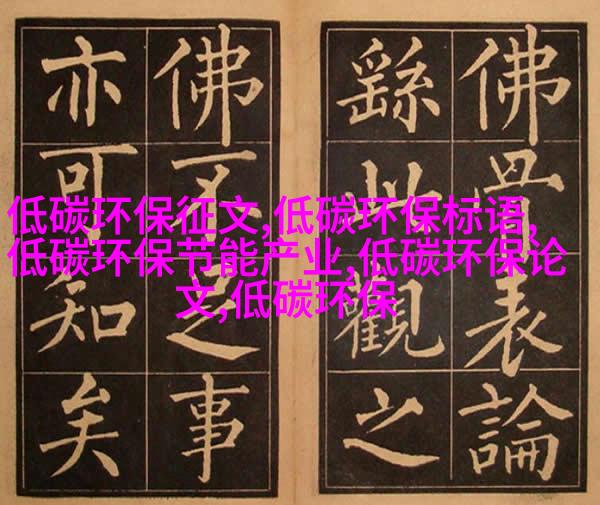 佛骨表論
繇此觀之
佛不足事
亦可知矣
低碳环保征文,低碳环保标语,
低碳环保节能产业,低碳环保论
文,低碳环保